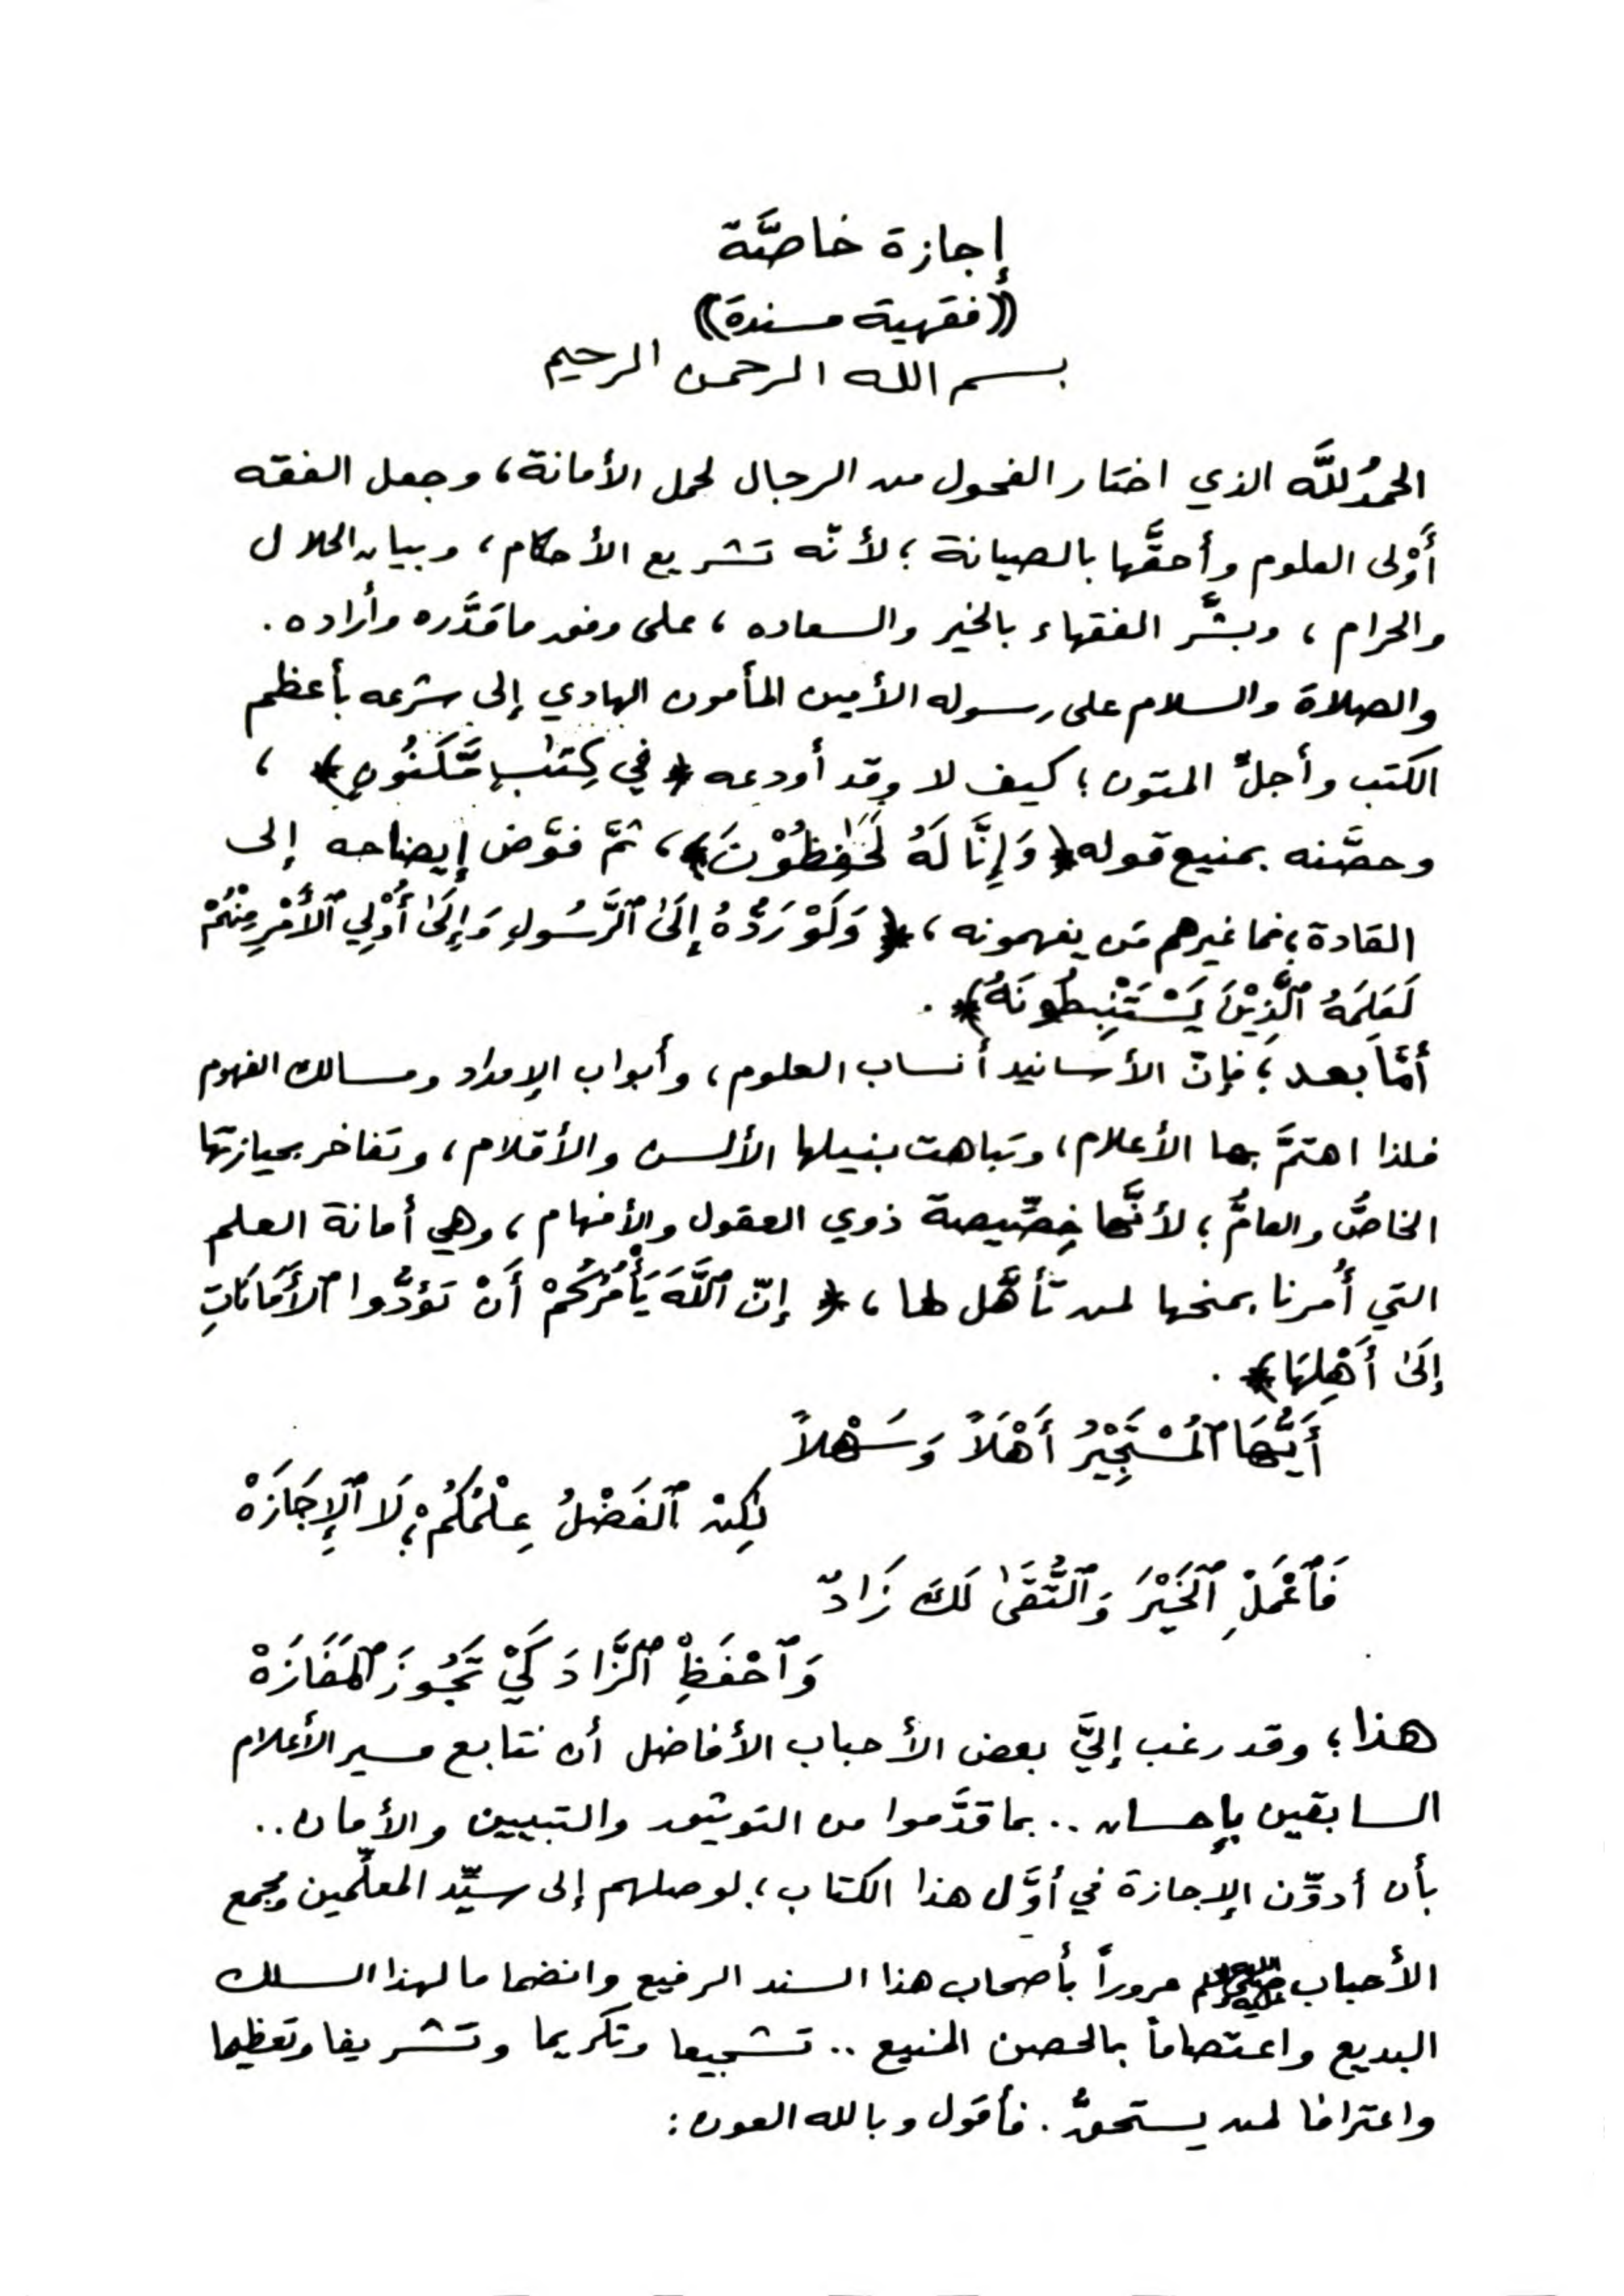 إجازة خاصَّة
((فقهية مسندة))
بسم الله الرحمن الرحيم
الحمدُ للَّه الذي اختار الفحول من الرجال لحمل الأمانة، وجعل الفقه
أَوْلى العلوم وأحقَّها بالصيانة؛ لأنّه تشريع الأحكام، وبيان الحلال
والحرام، وبشَّر الفقهاء بالخير والسعاده، على وفق ما قدَّره وأراده.
والصلاة والسلام على رسوله الأمين المأمون الهادي إلى شرعه بأعظم
الكتب وأجلِّ المتون؛ كيف لا وقد أودعه ﴿في كِتَٰبٍ مَّكْنُونٍ﴾،
وحصَّنه بمنيع قوله ﴿وَإِنَّا لَهُ لَحَٰفِظُوْنَ﴾، ثمَّ فوَّض إيضاحه إلى
القادة؛ فما غيرهم مَن يفهمونه، ﴿وَلَوْ رَدُّوهُ إِلَىٰ ٱلرَّسُولِ وَإِلَىٰ أُوْلِي ٱلْأَمْرِ مِنْهُمْ
لَعَلِمَهُ ٱلَّذِيْنَ يَسْتَنْبِطُونَهُ﴾.
أمَّا بعد؛ فإنّ الأسانيد أنساب العلوم، وأبواب الإمداد ومسالك الفهوم
فلذا اهتمَّ بها الأعلام، وتباهت بنيلها الألسن والأقلام، وتفاخر بحيازتها
الخاصُّ والعامُّ؛ لأنَّها خِصِّيصة ذوي العقول والأفهام، وهي أمانة العلم
التي أُمرنا بمنحها لمن تأهَّل لها، ﴿إنّ ٱللَّهَ يَأْمُرُكُمْ أَنْ تُؤَدُّوا ٱلْأَمَانَاتِ
إِلَىٰ أَهْلِهَا﴾.
أَيُّهَا ٱلْمُسْتَجِيْرُ أَهْلَاً وَسَهْلاً
لٰكِنْ ٱلْفَضْلُ عِلْمُكُمْ؛ لَا ٱلْإِجَازَهْ
فَٱعْمَلْ ٱلْخَيْرَ وَٱلتُّقَىٰ لَكَ زَادٌ
وَٱحْفَظِ ٱلزَّادَ كَيْ تَجُوزَ ٱلْمَفَازَهْ
هذا؛ وقد رغب إليَّ بعض الأحباب الأفاضل أن نتابع مسير الأعلام
السابقين بإحسان.. بما قدَّموا من التوثيق والتبيين والأمان..
بأن أدوِّن الإجازة في أوَّل هذا الكتاب؛ لوصلهم إلى سيِّد المعلِّمين ومجمع
الأحباب ﷺ مروراً بأصحاب هذا السند الرفيع وانضماما لهذا السلك
البديع واعتصاماً بالحصن المنيع.. تشجيعا وتكريما وتشريفا وتعظيما
واعترافا لمن يستحقُّ. فأقول وبالله العون: